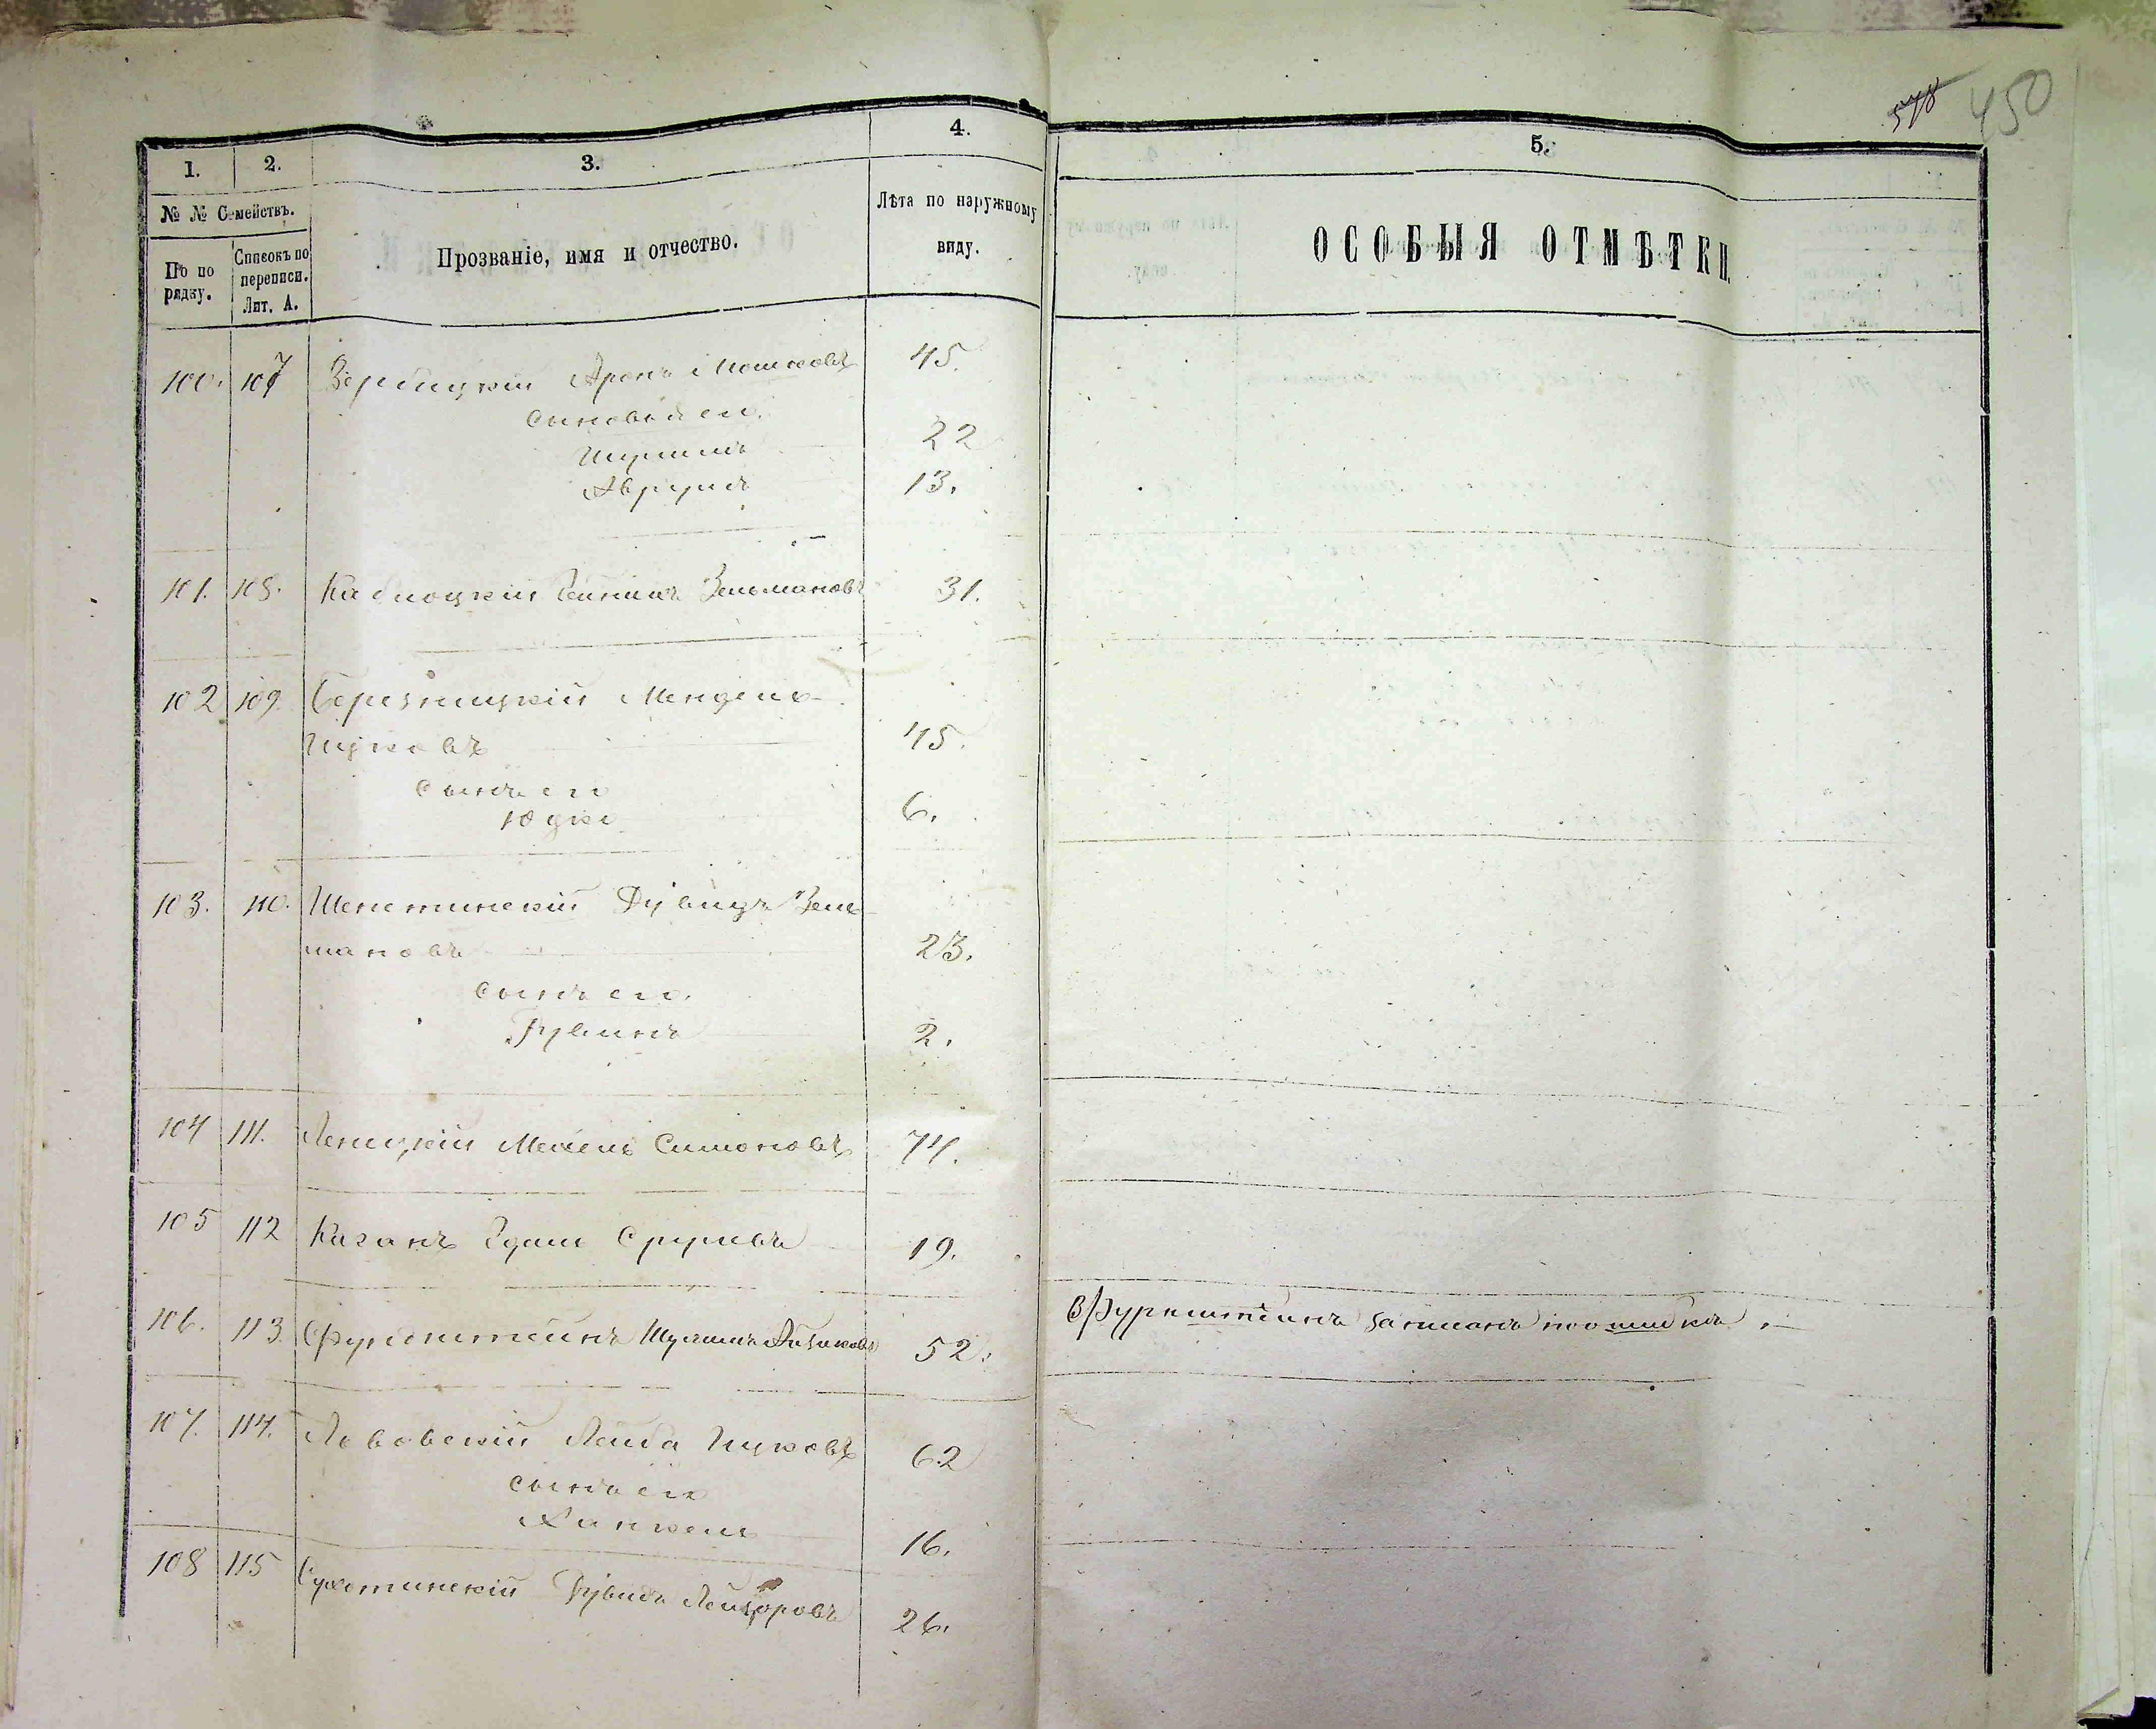 578 450
1. 2. 3. 4. 5.
№ № Семействъ.
По по
рядку.
Списокъ по
переписи.
Лит. А.
Прозваніе, имя и отчество.
Лѣта по наружному
виду.
ОСОБЫЯ ОТМѢТКИ.
100. 107 Вербицкій Аронъ Мошковъ 45.
Сыновья его.
Шулимъ 22
Аврумъ 13.
101. 108. Зельмановъ 31.
102 109. Березницкій Мендель
Ицковъ 45.
Сынъ его
Юдко 6.
103. 110. Дувидъ Зель
мановъ 23.
Сынъ его.
Рувинъ 2.
104 111. Симоновъ 74.
105 112 Каганъ Срулевъ 19.
106. 113. Шулимъ Айзиковъ 52.
Фурнштейнъ записанъ по ошибкѣ.
107. 114. Лововскій Лейба Ицковъ 62
сынъ его
Ханкель 16.
108 115 Сухотинскій Лейзоровъ 26.